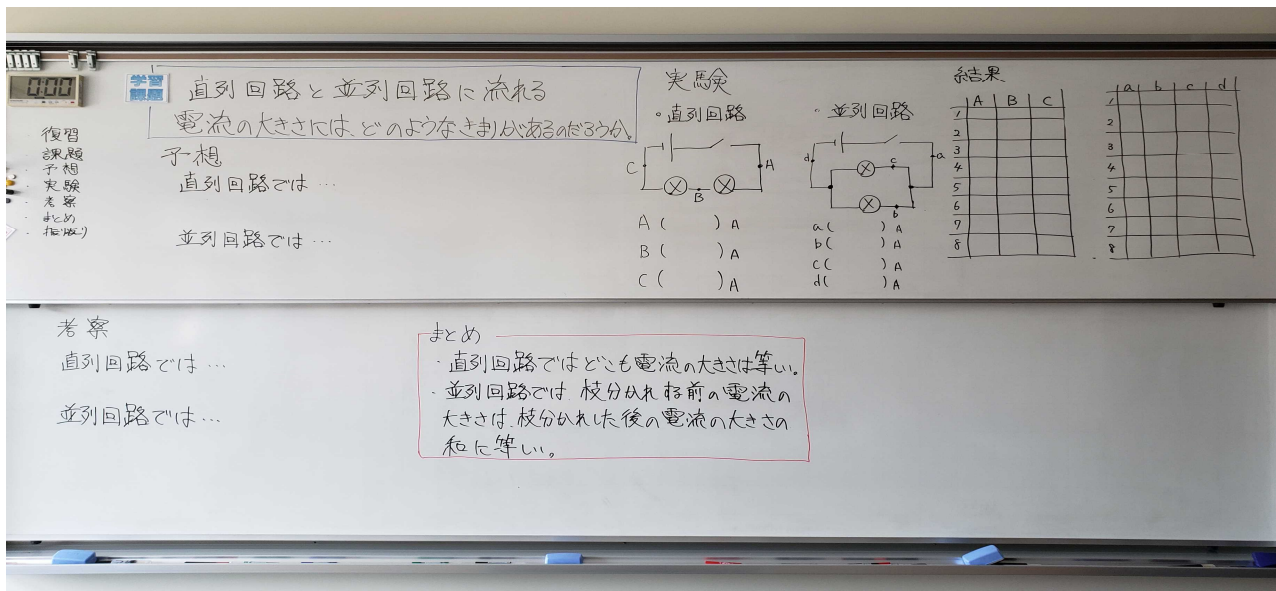 0:00
復習
課題
予想
実験
考察
まとめ
振り返り
学習
課題
直列回路と並列回路に流れる
電流の大きさには、どのようなきまりがあるのだろうか。
予想
直列回路では…
並列回路では…
実験
・直列回路
C
A
B
A( )A
B( )A
C( )A
・並列回路
d
c
a
b
a( )A
b( )A
c( )A
d( )A
結果
A B C
1
2
3
4
5
6
7
8
a b c d
1
2
3
4
5
6
7
8
考察
直列回路では…
並列回路では…
まとめ
・直列回路ではどこも電流の大きさは等しい。
・並列回路では、枝分かれする前の電流の
大きさは、枝分かれした後の電流の大きさの
和に等しい。